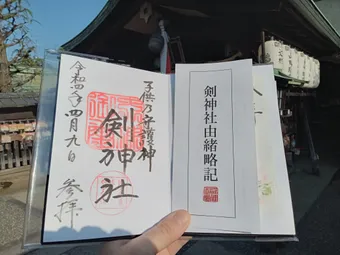 剣神社由緒略記
子供乃守護神
剣神社
参拝
令和四年四月九日